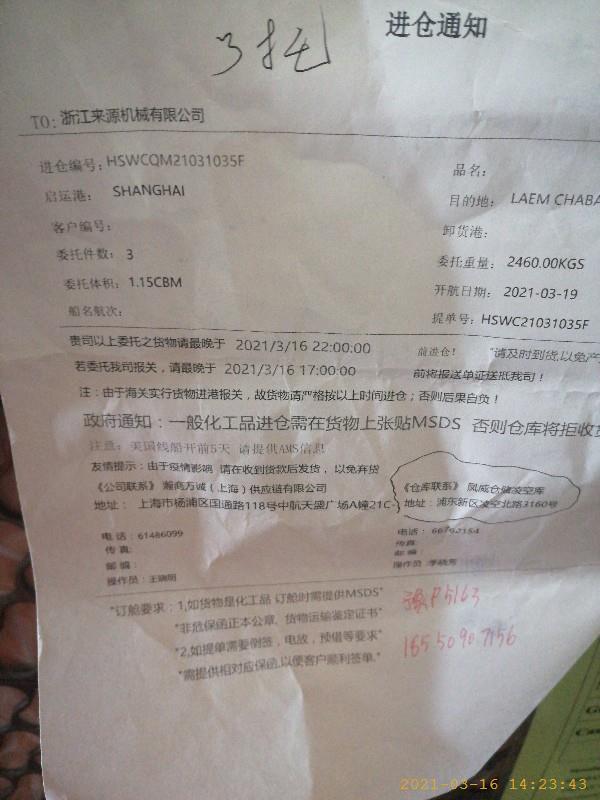 3托
进仓通知
TO: 浙江来源机械有限公司
进仓编号: HSWCQM21031035F
品名:
启运港: SHANGHAI
目的地: LAEM CHABA
客户编号:
卸货港:
委托件数: 3
委托重量: 2460.00KGS
委托体积: 1.15CBM
开航日期: 2021-03-19
船名航次:
提单号: HSWC21031035F
贵司以上委托之货物请最晚于 2021/3/16 22:00:00 前进仓! "请及时到货,以免产
若委托我司报关,请最晚于 2021/3/16 17:00:00 前将报送单证送抵我司!
注:由于海关实行货物进港报关,故货物请严格按以上时间进仓;否则后果自负!
政府通知:一般化工品进仓需在货物上张贴MSDS 否则仓库将拒收货
注意:美国线船开前5天 请提供AMS信息
友情提示:由于疫情影响 请在收到货款后发货,以免弃货
《公司联系》 瀚商万诚(上海)供应链有限公司
《仓库联系》 凤威仓储凌空库
地址: 上海市杨浦区国通路118号中航天盛广场A幢21C-
地址: 浦东新区凌空北路3160号
电话: 61486099
电话:
传真:
传真:
邮编:
邮编:
操作员:
操作员:
"订舱要求:1,如货物是化工品 订舱时需提供MSDS"
"非危保函正本公章,货物运输鉴定证书"
"2,如提单需要倒签,电放,预借等要求"
"需提供相对应保函.以便客户顺利签单."
豫P5163
16550907156
2021-03-16 14:23:43